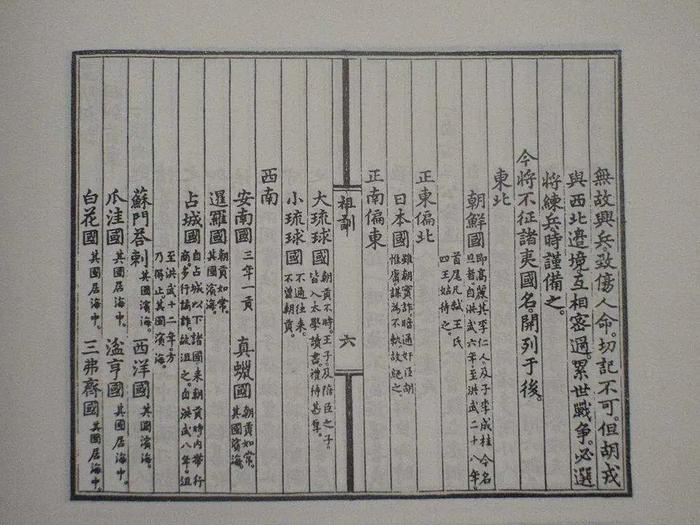 無故興兵。致傷人命。切記不可。但胡戎
與西北邊境。互相密邇。累世戰爭。必選
將練兵。時謹備之。
今將不征諸夷國名。開列于後。
東北
朝鮮國 即高麗其李仁人及子李成桂今名
旦者。自洪武六年至洪武二十八年。
首尾凡弒王氏
四王姑待之。
正東偏北
日本國 雖朝實詐暗通奸臣胡
惟庸謀為不軌故絕之
正南偏東
祖訓
六
大琉球國 朝貢不時。王子及陪臣之子。
皆入太學讀書。禮待甚厚。
小琉球國 不通往來。
不曾朝貢。
西南
安南國 三年一貢 真蠟國 朝貢如常。
其國濱海。
暹羅國 朝貢如常。
其國濱海。
占城國 自占城以下諸國來朝貢時內帶行
商多行譎詐。故沮之。自洪武八年。沮
至洪武十二年。方
乃得止其國濱海。
蘇門荅剌 其國濱海。 西洋國 其國濱海。
爪洼國 其國居海中。 湓亨國 其國居海中。
白花國 其國居海中。 三弗齊國 其國居海中。